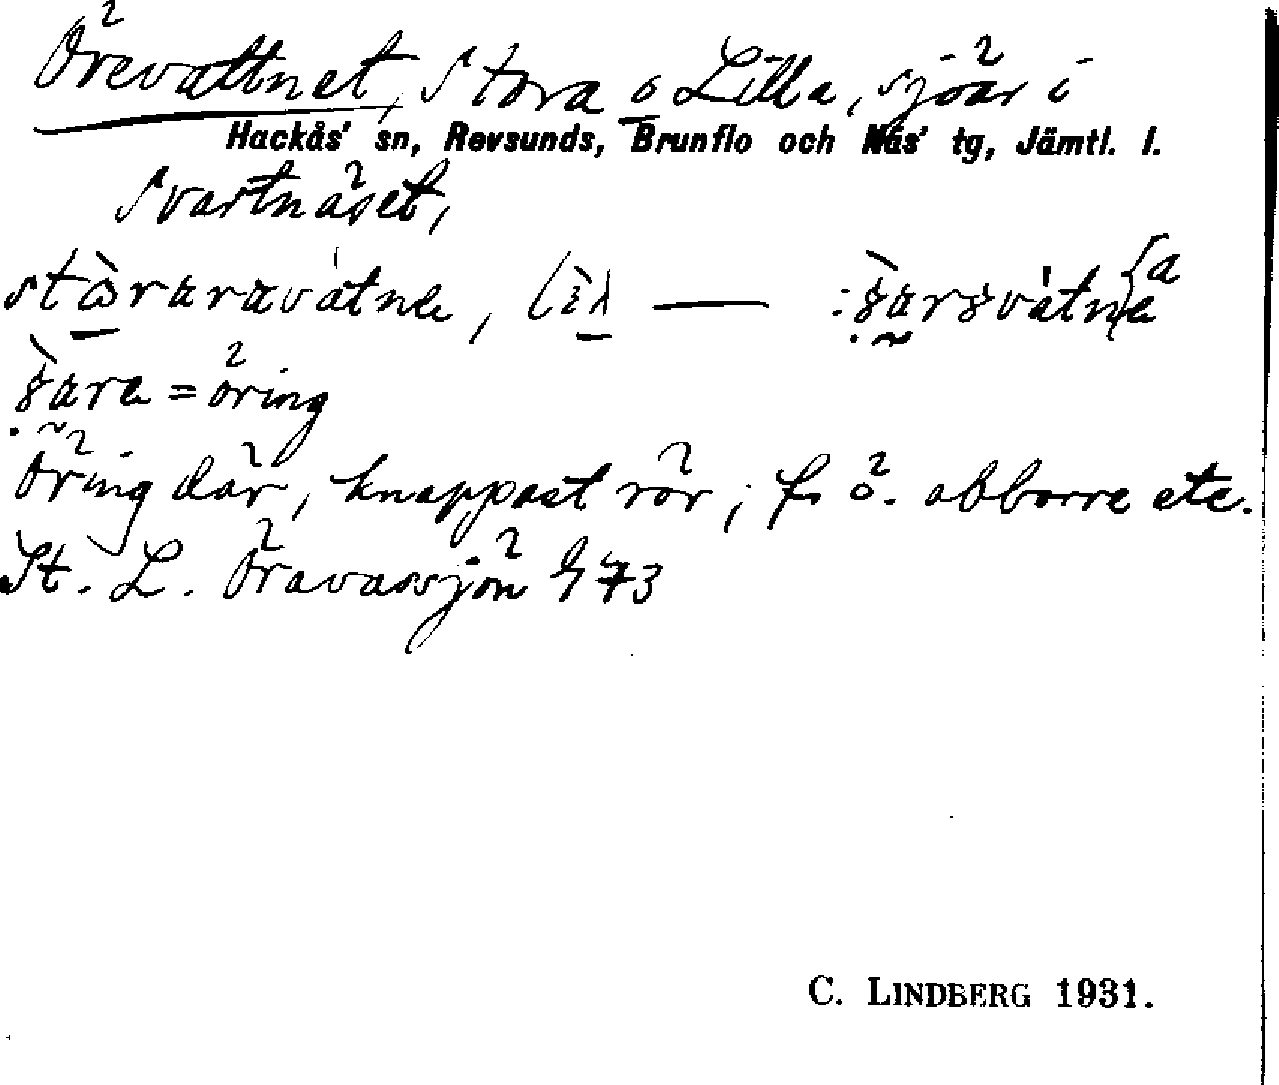 Örevattnet, Stora o Lilla, sjöar i
Hackås' sn, Revsunds, Brunflo och Näs' tg, Jämtl. l.
Svartnäset,
= öring
Öring där, knappast rör; f. ö. abborre etc.
St. L. Öravassjön 73
C. LINDBERG 1931.